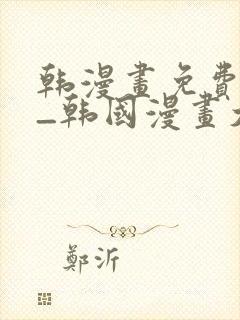 韩漫畫免費
_韩國漫畫
鄭沂